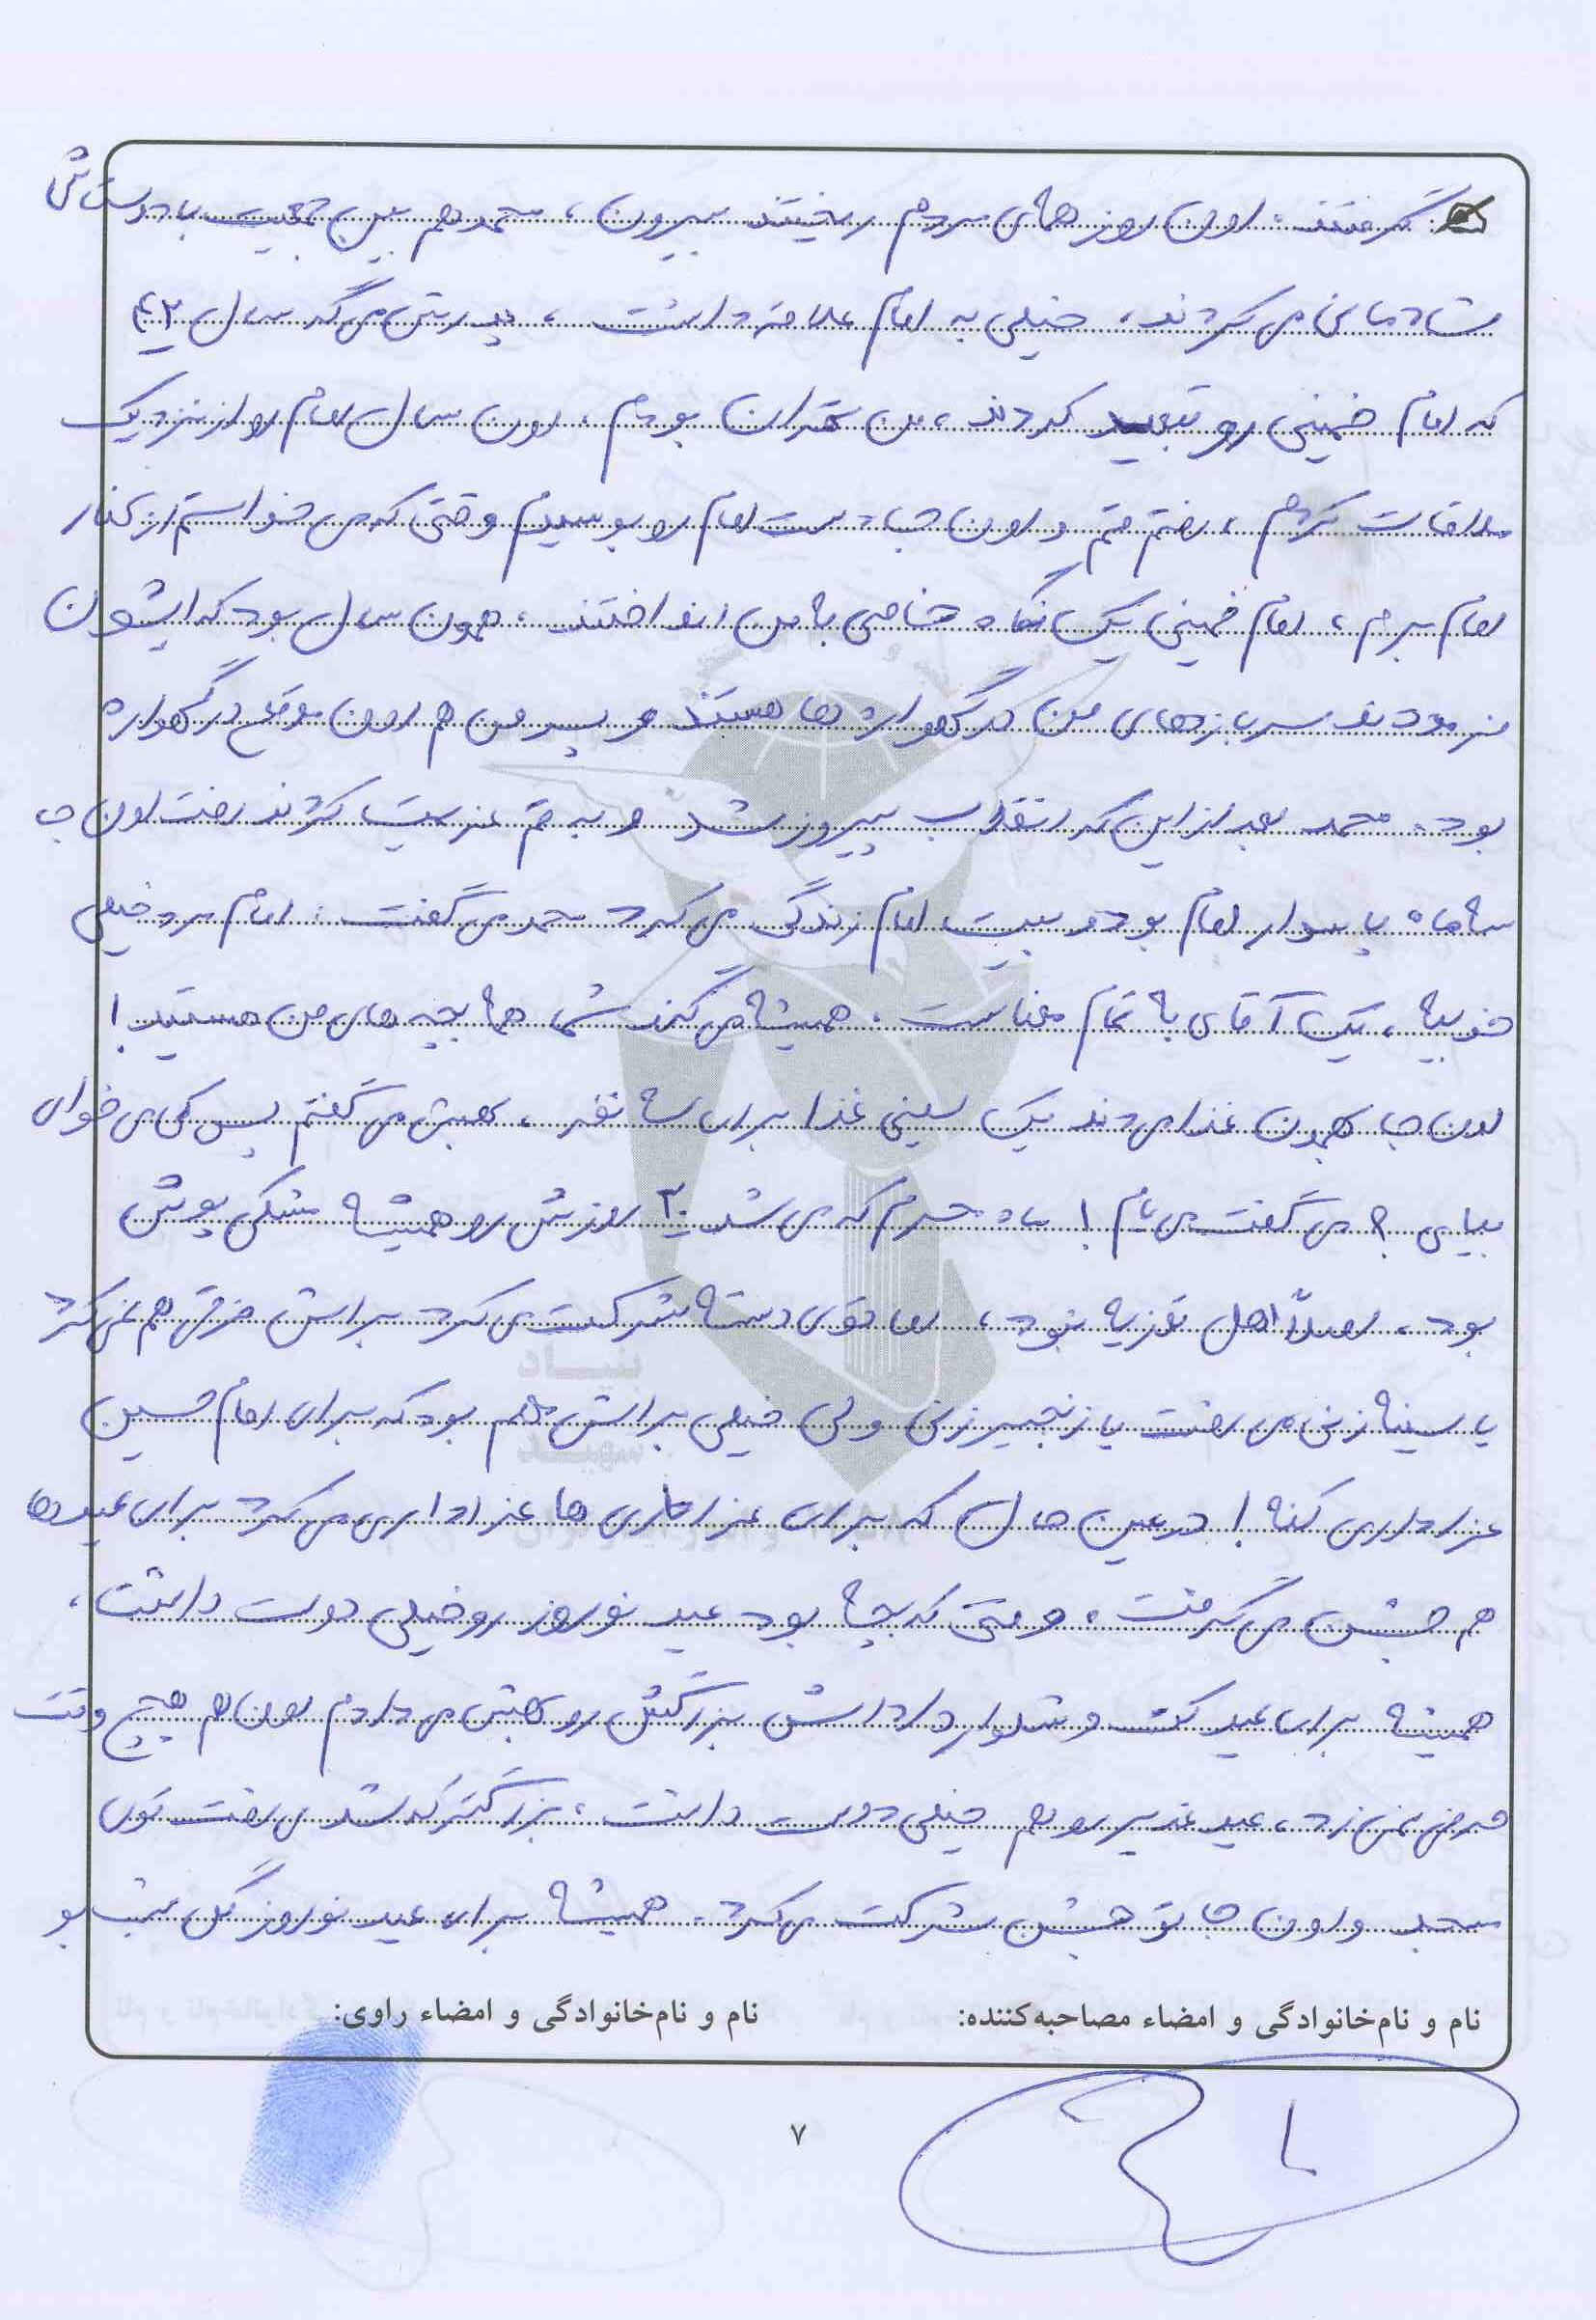 گرفتند، اون روز همه‌ی مردم ریختند بیرون، محمد هم بین جمعیت با دوستاش
شادمانی می‌کردند، خیلی به امام علاقه داشت، پدرش می‌گه سال ۴۲
که امام خمینی رو تبعید کردند، من تهران بودم، اون سال امام رو از نزدیک
ملاقات کردم، رفتم قم و اون جا دست امام رو بوسیدم وقتی که می خواستم از کنار
امام برم، امام خمینی یک نگاه خاصی به من انداختند، همون سال بود که ایشون
فرمودند سربازهای من در گهواره ها هستند و پسر من هم اون موقع در گهواره
بود. محمد بعد از این که انقلاب پیروز شد و به قم عزیمت کردند رفت اون جا
سه ماه پاسدار امام بود و بیت امام زندگی می کرد محمد می گفت: امام مرد خیلی
خوبیه، یک آقای به تمام معناست، همیشه می گند شما ها بچه های من هستید!
اون جا بهمون غذا می دند یک سینی غذا برای سه نفر، بهش می گفتم پس کی می خوای
بیای؟ می گفت می یام! ماه محرم که می شد ۳۰ روزش رو همیشه مشکی پوش
بود. اصلاً اهل تعزیه نبود، اما توی دسته شرکت می کرد براش فرقی هم نمی کرد
یا سینه زنی می رفت یا زنجیر زنی ولی خیلی براش مهم بود که برای امام حسین
عزاداری کنه! در عین حال که برای عزاداری ها عزاداری می کرد برای عیدها
هم جشن می گرفت. وقتی که بچه بود عید نوروز رو خیلی دوست داشت،
همیشه برای عید کت و شلوار داداش بزرگش رو بهش می دادم اون هم هیچ وقت
حرفی نمی زد، عید غدیر رو هم خیلی دوست داشت، بزرگتر که شد می رفت توی
مسجد و اون جا تو جشن شرکت می کرد. همیشه برای عید نوروز گل شب بو
نام و نام‌خانوادگی و امضاء مصاحبه‌کننده: نام و نام‌خانوادگی و امضاء راوی:
۷
بنیاد
شهید